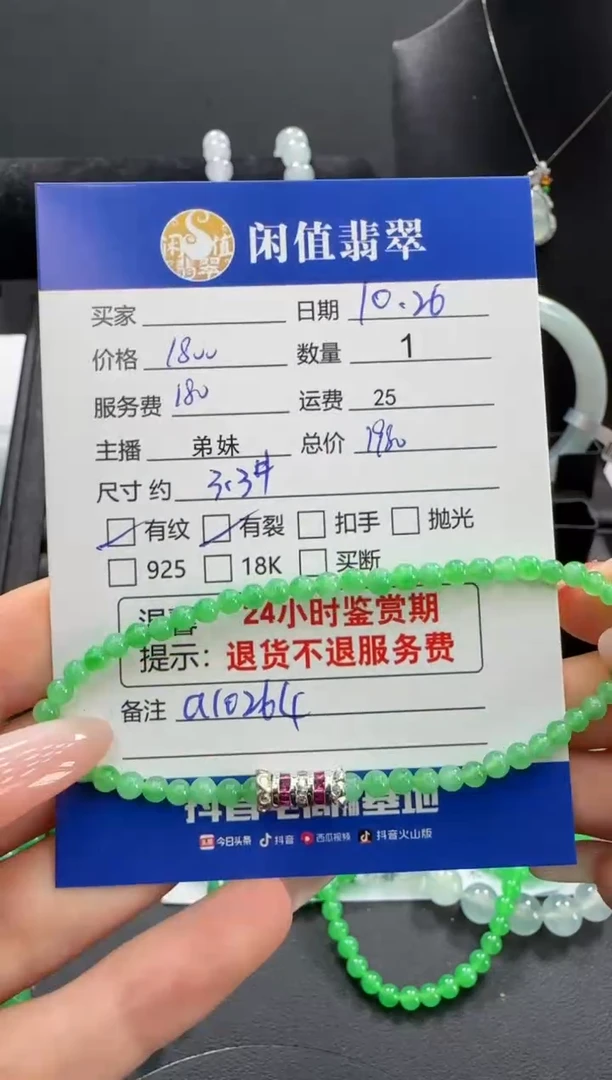 闲值翡翠
闲值翡翠
买家 日期 10.26
价格 1800 数量 1
服务费 180 运费 25
主播 弟妹 总价 1980
尺寸 约 3.3#
有纹 有裂 扣手 抛光
925 18K 买断
24小时鉴赏期
提示：退货不退服务费
备注 a10264
抖音
基地
今日头条 抖音 西瓜视频 抖音火山版